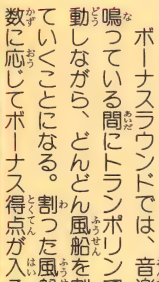 ボーナスラウンドでは、音楽
鳴っている間にトランポリンで
動しながら、どんどん風船を割
ていくことになる。割った風船
数に応じてボーナス得点が入